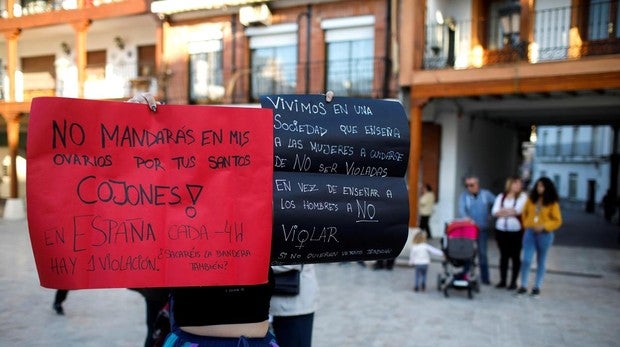 NO MANDARÁS EN MIS
OVARIOS POR TUS SANTOS
COJONES!
EN ESPAÑA CADA -4H
HAY 1 VIOLACIÓN.
¿SACARÉIS LA BANDERA
TAMBIÉN?
VIVIMOS EN UNA
SOCIEDAD QUE ENSEÑA
A LAS MUJERES A CUIDARSE
DE NO SER VIOLADAS
EN VEZ DE ENSEÑAR A
LOS HOMBRES A NO
VIOLAR
SI NO QUIEREN VERNOS